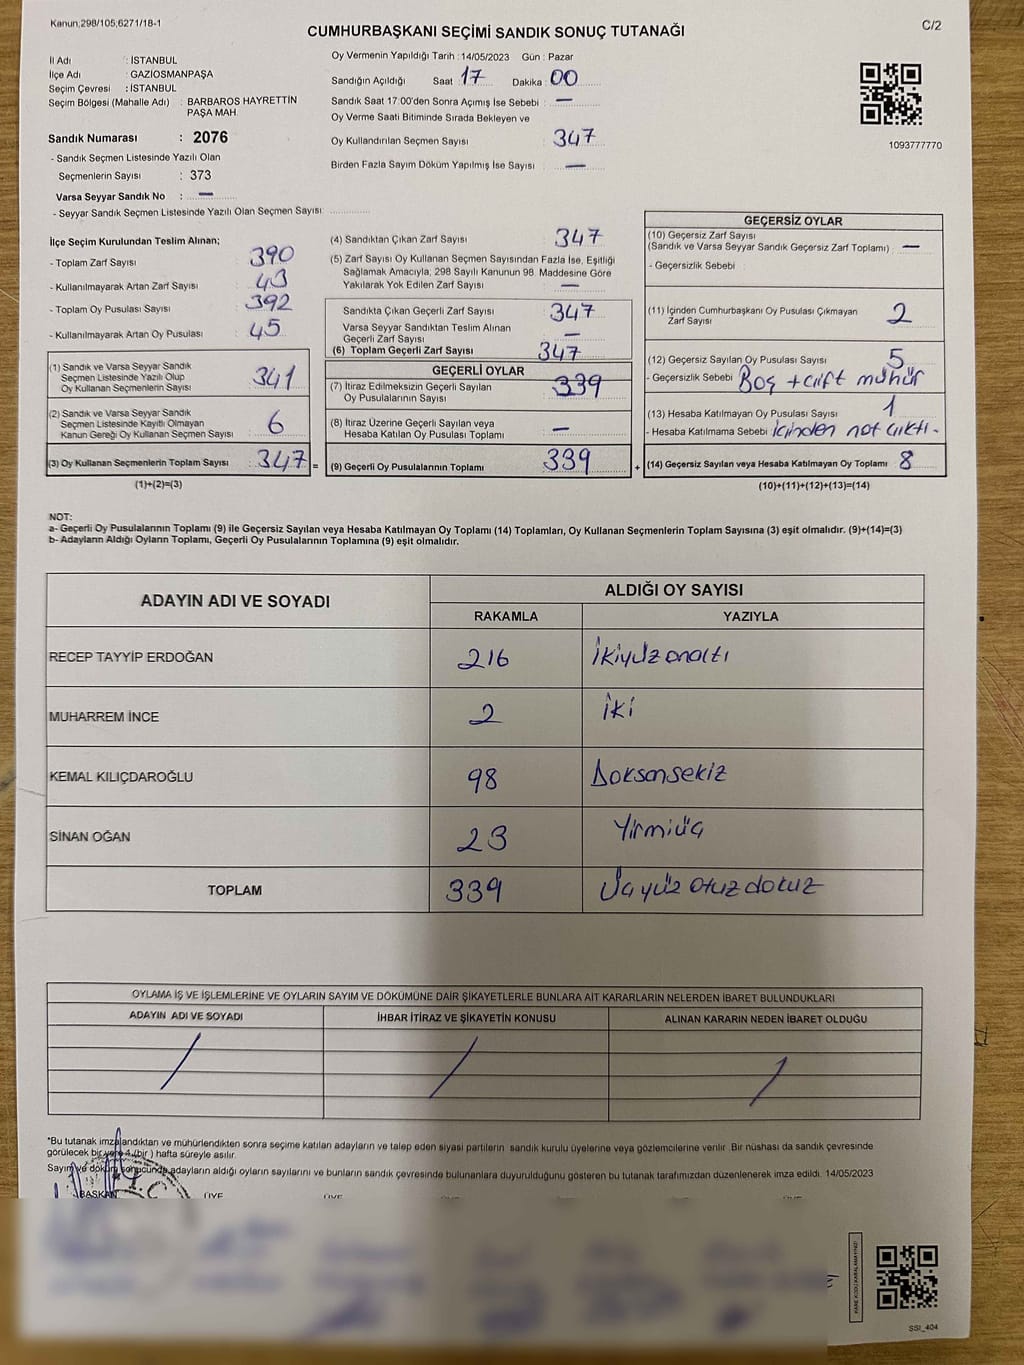 Kanun;298/105;6271/18-1
CUMHURBAŞKANI SEÇİMİ SANDIK SONUÇ TUTANAĞI
C/2
İl Adı : İSTANBUL
İlçe Adı : GAZİOSMANPAŞA
Seçim Çevresi : İSTANBUL
Seçim Bölgesi (Mahalle Adı) : BARBAROS HAYRETTİN
PAŞA MAH.
Sandık Numarası : 2076
- Sandık Seçmen Listesinde Yazılı Olan
Seçmenlerin Sayısı : 373
Varsa Seyyar Sandık No : —
- Seyyar Sandık Seçmen Listesinde Yazılı Olan Seçmen Sayısı:
Oy Vermenin Yapıldığı Tarih : 14/05/2023 Gün : Pazar
Sandığın Açıldığı Saat : 17 Dakika : 00
Sandık Saat 17:00'den Sonra Açımış İse Sebebi : —
Oy Verme Saati Bitiminde Sırada Bekleyen ve
Oy Kullandırılan Seçmen Sayısı : 347
Birden Fazla Sayım Döküm Yapılmış İse Sayısı : —
1093777770
İlçe Seçim Kurulundan Teslim Alınan;
- Toplam Zarf Sayısı : 390
- Kullanılmayarak Artan Zarf Sayısı : 43
- Toplam Oy Pusulası Sayısı : 392
- Kullanılmayarak Artan Oy Pusulası : 45
(1) Sandık ve Varsa Seyyar Sandık
Seçmen Listesinde Yazılı Olup
Oy Kullanan Seçmenlerin Sayısı : 341
(2) Sandık ve Varsa Seyyar Sandık
Seçmen Listesinde Kayıtlı Olmayan
Kanun Gereği Oy Kullanan Seçmen Sayısı : 6
(3) Oy Kullanan Seçmenlerin Toplam Sayısı : 347 =
(1)+(2)=(3)
(4) Sandıktan Çıkan Zarf Sayısı : 347
(5) Zarf Sayısı Oy Kullanan Seçmen Sayısından Fazla İse, Eşitliği
Sağlamak Amacıyla, 298 Sayılı Kanunun 98. Maddesine Göre
Yakılarak Yok Edilen Zarf Sayısı : —
Sandıkta Çıkan Geçerli Zarf Sayısı : 347
Varsa Seyyar Sandıktan Teslim Alınan
Geçerli Zarf Sayısı : —
(6) Toplam Geçerli Zarf Sayısı : 347
GEÇERLİ OYLAR
(7) İtiraz Edilmeksizin Geçerli Sayılan
Oy Pusulalarının Sayısı : 339
(8) İtiraz Üzerine Geçerli Sayılan veya
Hesaba Katılan Oy Pusulası Toplamı : —
(9) Geçerli Oy Pusulalarının Toplamı : 339 +
GEÇERSİZ OYLAR
(10) Geçersiz Zarf Sayısı
(Sandık ve Varsa Seyyar Sandık Geçersiz Zarf Toplamı) : —
- Geçersizlik Sebebi :
(11) İçinden Cumhurbaşkanı Oy Pusulası Çıkmayan
Zarf Sayısı : 2
(12) Geçersiz Sayılan Oy Pusulası Sayısı : 5
- Geçersizlik Sebebi : Boş + çift mühür
(13) Hesaba Katılmayan Oy Pusulası Sayısı : 1
- Hesaba Katılmama Sebebi : içinden not çıktı.
(14) Geçersiz Sayılan veya Hesaba Katılmayan Oy Toplamı : 8
(10)+(11)+(12)+(13)=(14)
NOT:
a- Geçerli Oy Pusulalarının Toplamı (9) ile Geçersiz Sayılan veya Hesaba Katılmayan Oy Toplamı (14) Toplamları, Oy Kullanan Seçmenlerin Toplam Sayısına (3) eşit olmalıdır. (9)+(14)=(3)
b- Adayların Aldığı Oyların Toplamı, Geçerli Oy Pusulalarının Toplamına (9) eşit olmalıdır.
ADAYIN ADI VE SOYADI
ALDIĞI OY SAYISI
RAKAMLA YAZIYLA
RECEP TAYYİP ERDOĞAN 216 İkiyüz onaltı
MUHARREM İNCE 2 İki
KEMAL KILIÇDAROĞLU 98 Doksansekiz
SİNAN OĞAN 23 Yirmiüç
TOPLAM 339 Üçyüz otuz dokuz
OYLAMA İŞ VE İŞLEMLERİNE VE OYLARIN SAYIM VE DÖKÜMÜNE DAİR ŞİKAYETLERLE BUNLARA AİT KARARLARIN NELERDEN İBARET BULUNDUKLARI
ADAYIN ADI VE SOYADI İHBAR İTİRAZ VE ŞİKAYETİN KONUSU ALINAN KARARIN NEDEN İBARET OLDUĞU
*Bu tutanak imzalandıktan ve mühürlendikten sonra seçime katılan adayların ve talep eden siyasi partilerin sandık kurulu üyelerine veya gözlemcilerine verilir. Bir nüshası da sandık çevresinde
görülecek bir yere 1 (bir) hafta süreyle asılır.
Sayım ve döküm sonucunda adayların aldığı oyların sayılarını ve bunların sandık çevresinde bulunanlara duyurulduğunu gösteren bu tutanak tarafımızdan düzenlenerek imza edildi. 14/05/2023
T.C.
BAŞKAN ÜYE ÜYE
SSI_404